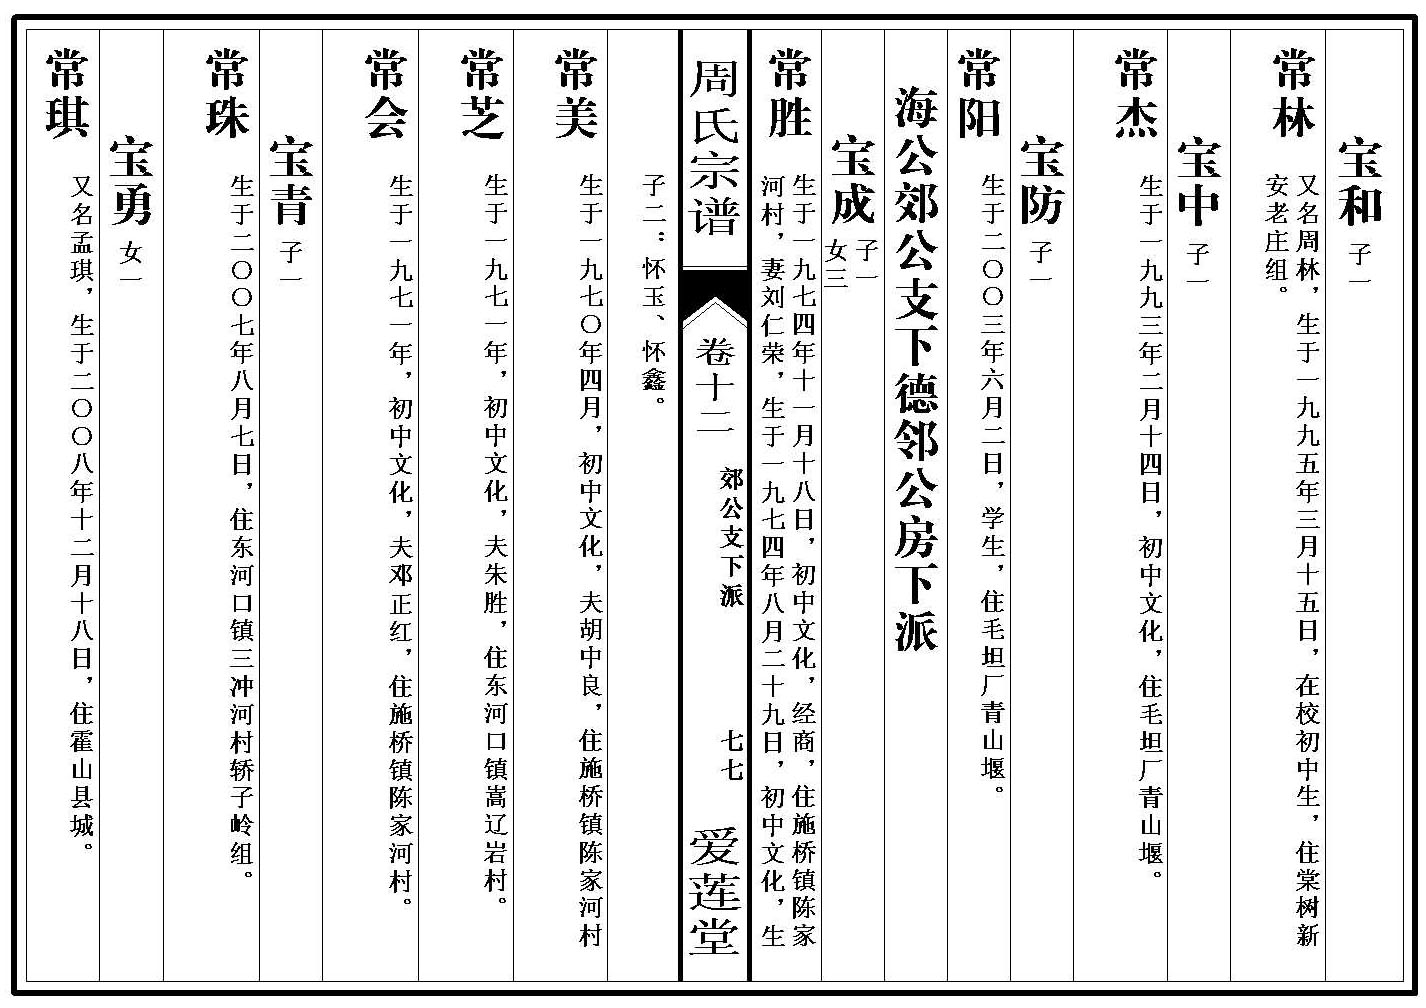 宝和 子一
常林 又名周林，生于一九九五年三月十五日，在校初中生，住棠树新
安老庄组。
宝中 子一
常杰 生于一九九三年二月十四日，初中文化，住毛坦厂青山堰。
宝防 子一
常阳 生于二〇〇三年六月二日，学生，住毛坦厂青山堰。
海公郊公支下德邻公房下派
宝成 子一
女三
常胜 生于一九七四年十一月十八日，初中文化，经商，住施桥镇陈家
河村，妻刘仁荣，生于一九七四年八月二十九日，初中文化，生
周氏宗谱 卷十二 郊公支下派 七七 爱莲堂
子二：怀玉、怀鑫。
常美 生于一九七〇年四月，初中文化，夫胡中良，住施桥镇陈家河村
常芝 生于一九七一年，初中文化，夫朱胜，住东河口镇嵩辽岩村。
常会 生于一九七一年，初中文化，夫邓正红，住施桥镇陈家河村。
宝青 子一
常珠 生于二〇〇七年八月七日，住东河口镇三冲河村轿子岭组。
宝勇 女一
常琪 又名孟琪，生于二〇〇八年十二月十八日，住霍山县城。